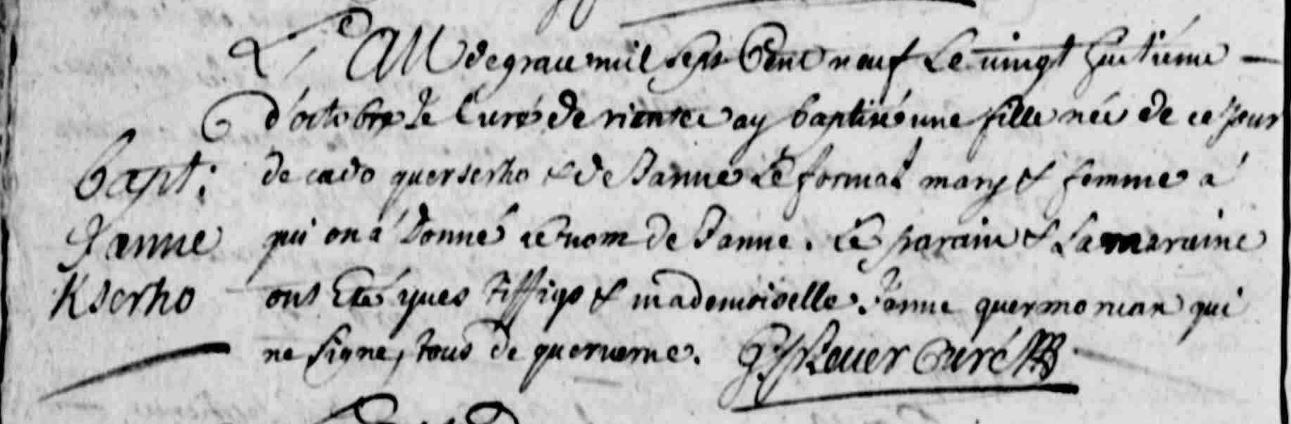 L'An de grace mil sept Cent neuf Le vingt huitiéme
d'octobre Le Curé de riantec ay baptisé une fille née de ce Jour
bapt: de cado querserho & de Janne Le formal mary & femme a
Janne qui on a donné le nom de Janne. Le parain & La maraine
Kserho ont Eté yves & mademoiselle Janne quermorvan qui
ne signe, tous de querverne. Curé